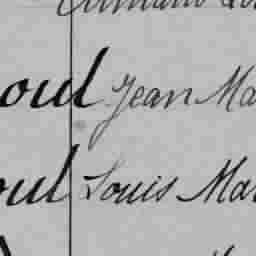 oul Jean Ma
oul Louis Mar